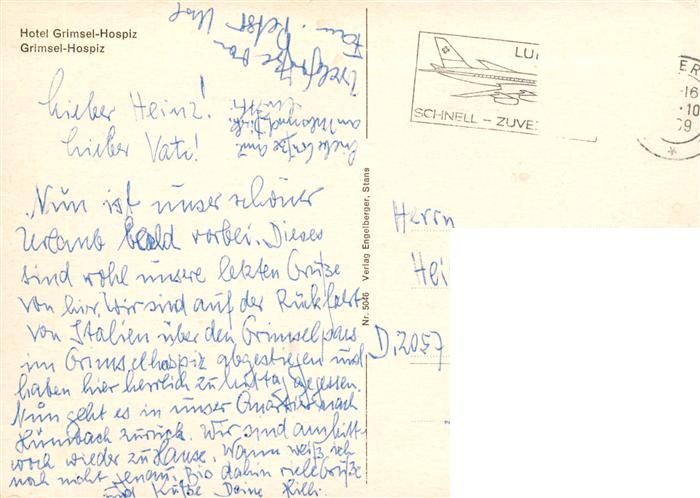 Hotel Grimsel-Hospiz
Grimsel-Hospiz
Lieber Heinz!
Lieber Vati!
Nun ist unser schöner
Urlaub bald vorbei. Dieses
sind wohl unsere letzten Grüße
von hier. Wir sind auf der Rückfahrt
von Italien über den Grimselpass
im Grimselhospiz abgestiegen und
haben hier herrlich zu Mittag gegessen.
Nun geht es in unser Quartier nach
zurück. Wir sind am Mitt-
woch wieder zu Hause. Wann weiß ich
noch nicht genau. Bis dahin viele Grüße
und Küsse Deine
Viele Grüße von
Fam.
Nr. 5046 Verlag Engelberger, Stans
LU
SCHNELL - ZUVE
ER
-16
.10
69
Herrn
Hei
D.2057